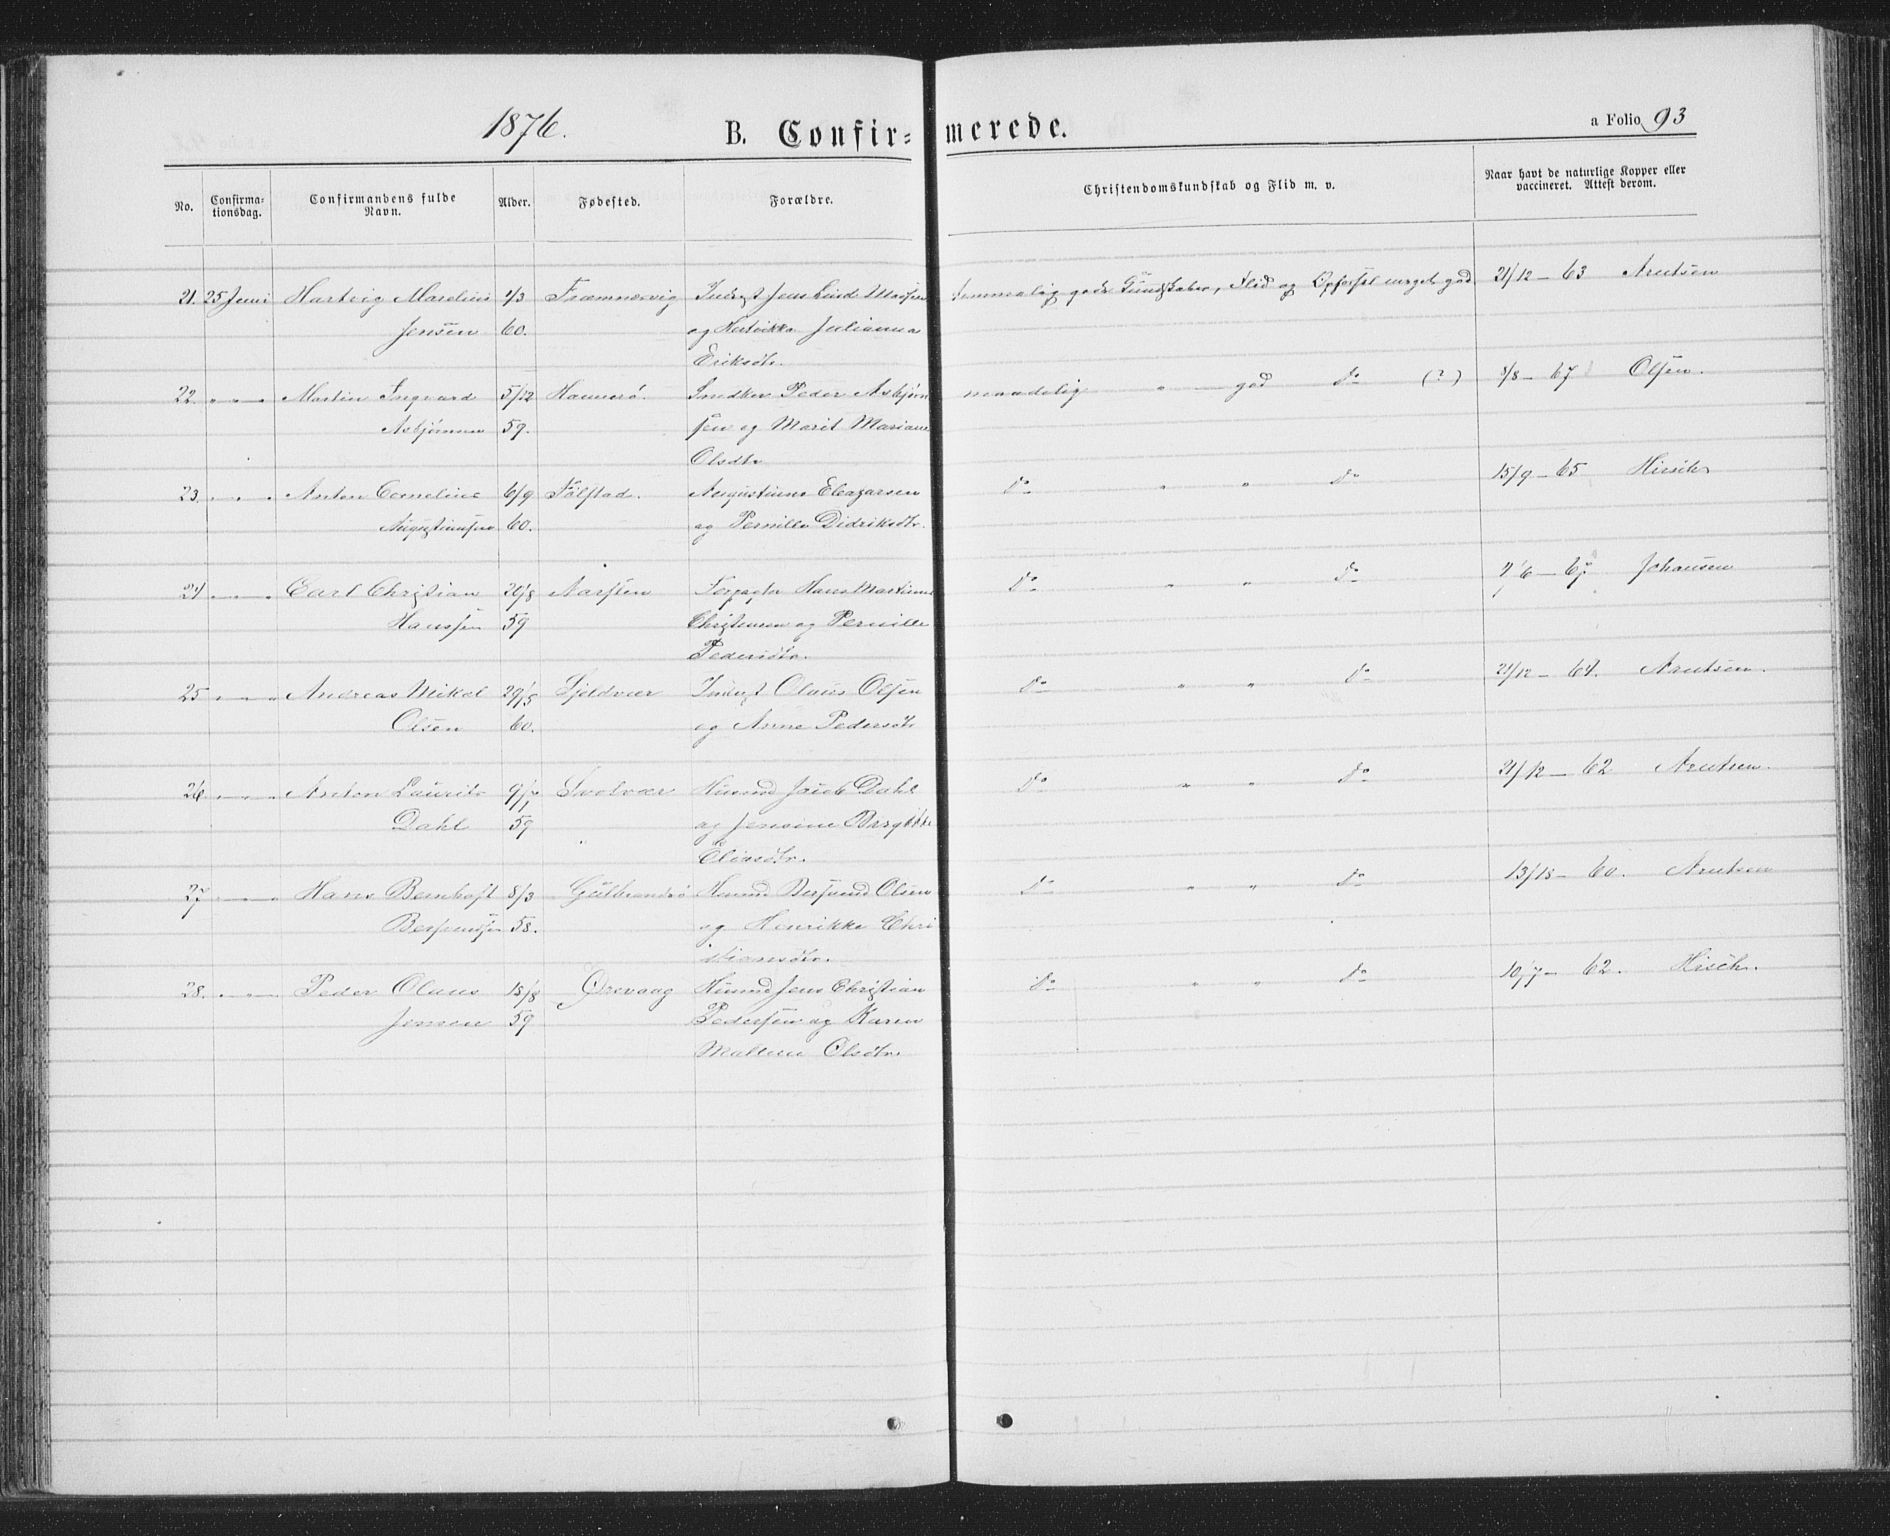 1876.
B. Confir=
merede.
a Folio 93
No.
Confirma-
tionsdag.
Confirmandens fulde
Navn.
Alder.
Fødested.
Forældre.
Christendomskundskab og Flid m. v.
Naar havt de naturlige Kopper eller
vaccineret. Attest derom.
21. 25 Juni Hartvig Marelius 1/3 Inderst Jens Linde temmelig gode Kundskaber, Flid og Opførsel meget god 21/12 - 63
Jensen 60. og Julianna
Eriksdtr.
22. " " " Martin Ingvard 5/12 Hammerö. Snedker Peder Asbjørn maadelig " god do (?) 3/8 - 67 Olsen.
Asbjørnsen 59. sen og Marit Mariane
Olsdtr
23. " " " Anton Cornelius 6/9 Augustinus Eleazarsen do " " do 15/9 - 65 Hirsch
Augustinussen 60. og Pernille Didriksdtr.
24 " " " Carl Christian 20/8 Forpagter Hans Martinus do " " do 6 - 67 Johansen
Hanssen 59 Christensen og Pernille
Pedersdtr.
25 " " " Andreas Mikal 29/5 Inderst Olaus Olsen do " " do 21/12 - 64.
Olsen 60. og Anne Pedersdtr
26. " " " Anton Laurits Svolvær Husmd Jacob Dahl do " " do 21/12 - 62
Dahl 59 og Jensine Bergitte
Eliasdtr.
27 " " " Hans Bernhoft 8/3 Gulbrandsö Husmd Olsen do " " do - 60.
58. og Henrikke Chri
stiansdtr.
28. " " " Peder Olaus 18/8 Ørsvaag Husmd Jens Christian do " " do 10/7 - 62. Hirsch.
Jensen 59 Pedersen og Karen
Olsdtr.